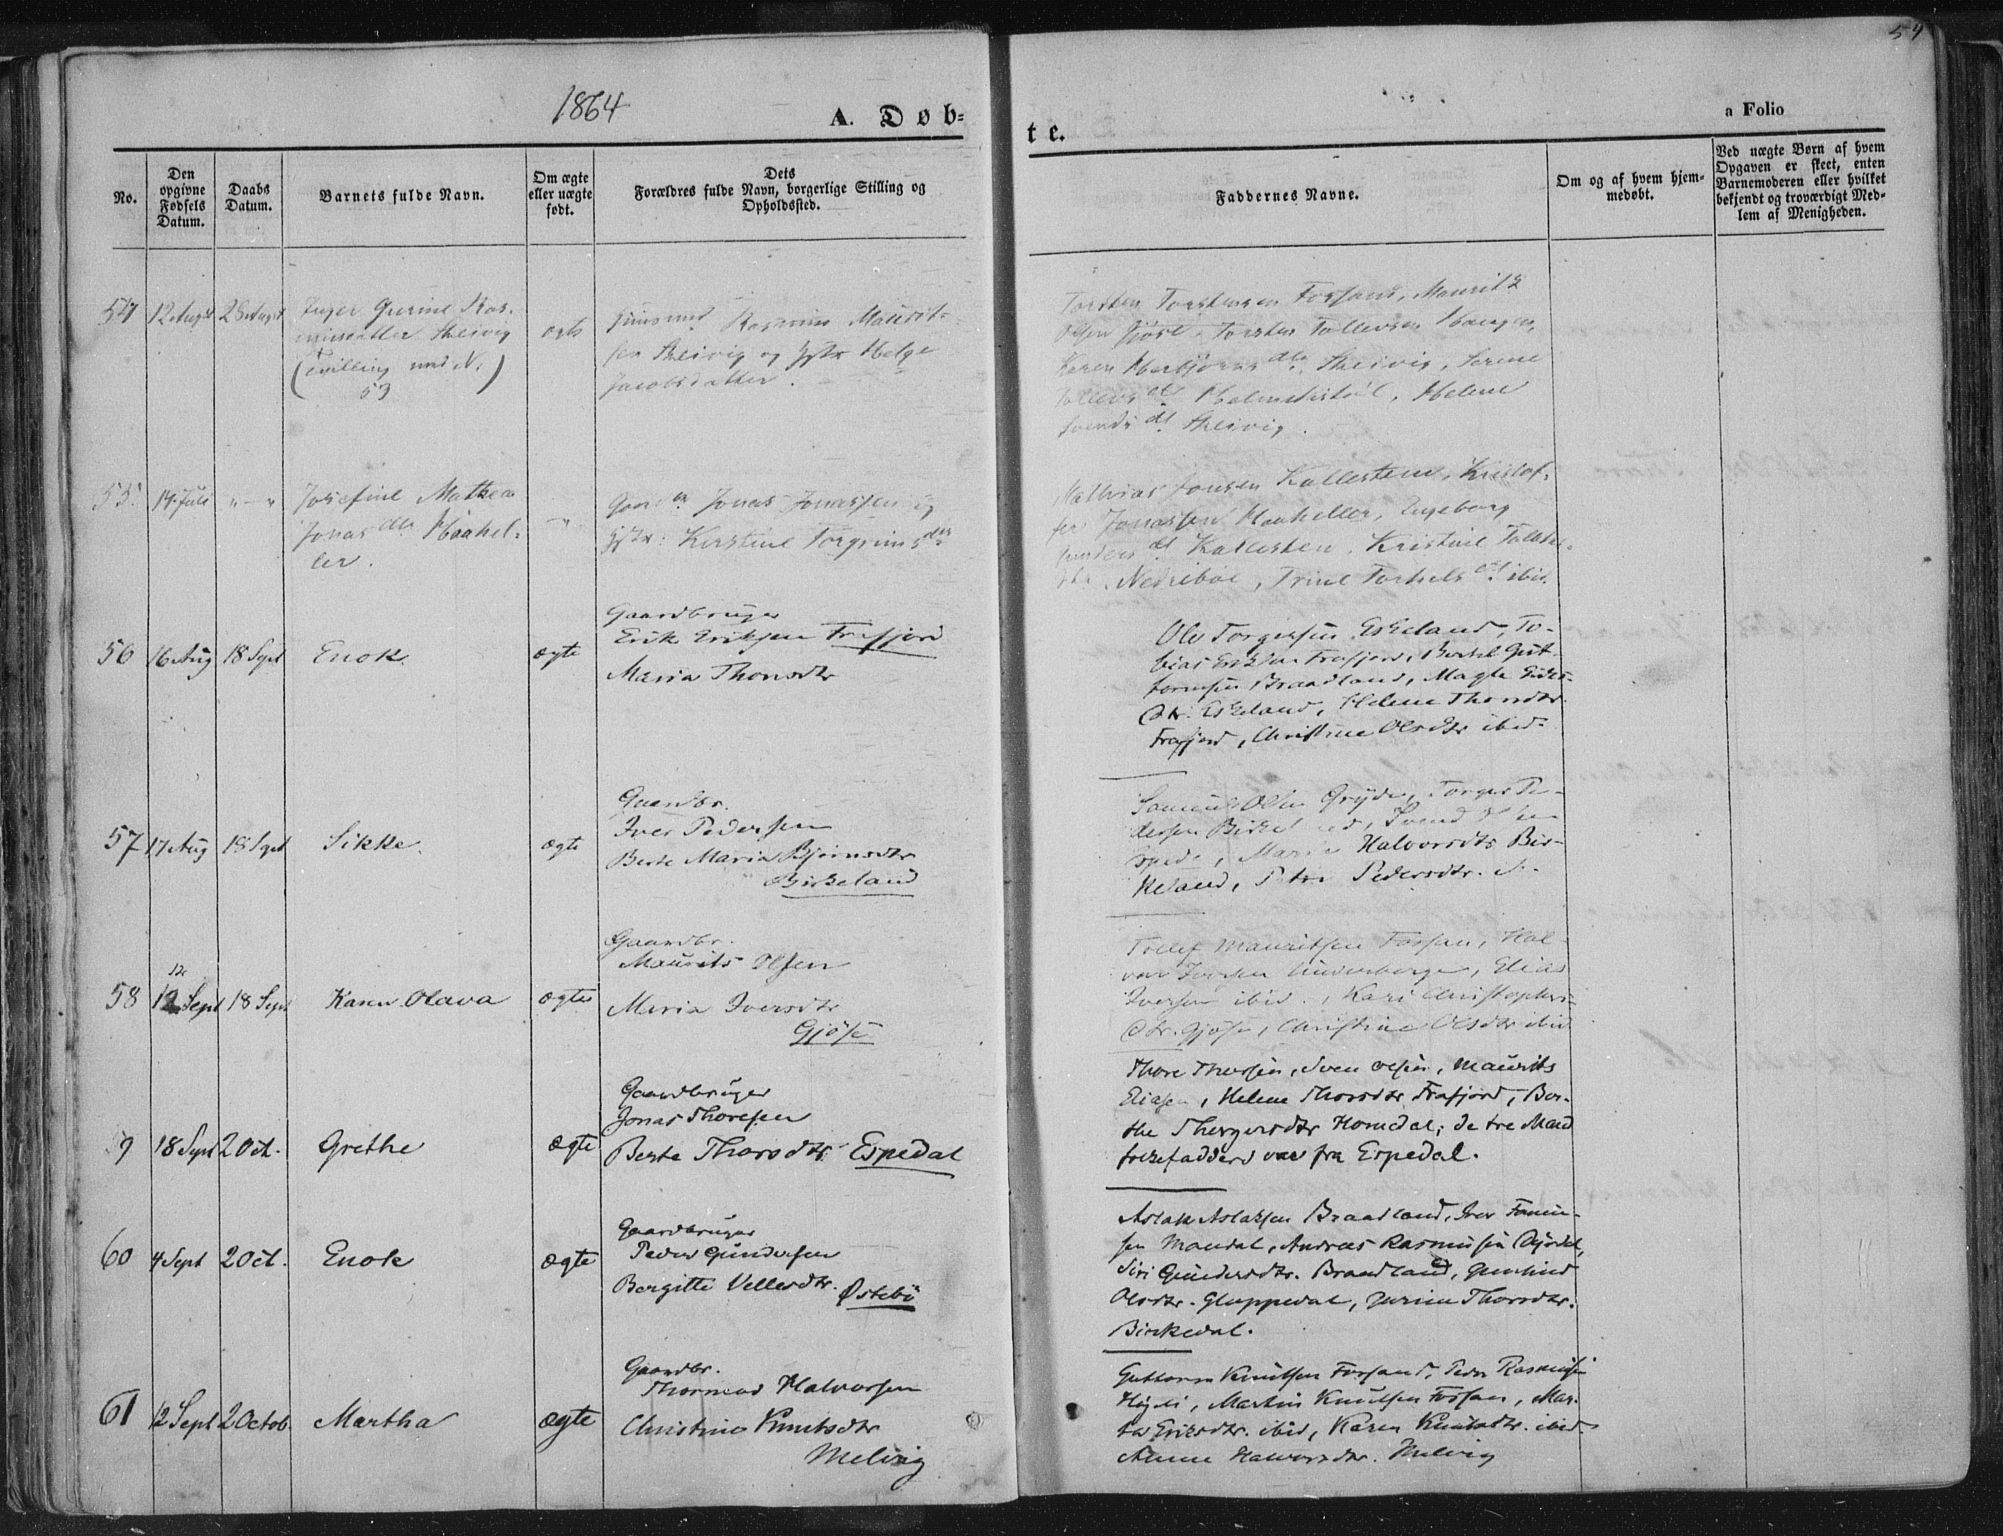 54
1864
A. Døb=
te.
a Folio
No.
Den opgivne Fødsels Datum.
Daabs Datum.
Barnets fulde Navn.
Om ægte eller uægte født.
Dets Forældres fulde Navn, borgerlige Stilling og Opholdssted.
Faddernes Navne.
Om og af hvem hjemmedøbt.
Ved uægte Børn af hvem Opgaven er skeet, enten Barnemoderen eller hvilket bekjendt og troværdigt Medlem af Menigheden.
54 12 August 28 August
Inger Gurine Ras-
musdatter Skeivig
(Tvilling med N.
53)
ægte
Rasmus Maurit-
sen Skeivig og Hstr Helge
Jacobsdatter.
Torsten Torstensen Forsand, Mauritz
Olsen Gjøse, Torsten Tollevsen Haugen,
Karen Herbjørns dtr Skeivig, Serene
Tollevs dt Holmestøl, Helene
Svends dt Skeivig.
55. 14 Juli " — "
Josefine Mathea
Jonas dtr Haahel-
ler.
"
Jonas Jonassen og
Hstr: Kirstine Torgrims dtr
Mathias Jonsen Kallesten, Kristof-
fer Jonassen Haaheller, Ingeborg
Gunders dt Kallesten, Kristine
Nedrebøe, Trine Torkels dt ibid.
56 16 Aug 18 Sept
Enok
ægte
Gaardbruger
Erik Eriksen Frafjord
Maria Thorsdtr
Ole Torgersen Eskeland, To-
bias Eriksen Frafjord, Bertel Gut-
tormsen Braadland, Magla
dtr. Eskeland, Helene Thorsdtr.
Frafjord, Christine Olsdtr ibid.
57 17 Aug 18 Sept
Sikke
ægte
Gaardbr.
Iver Pedersen
Berte Maria Bjørnsdtr
Birkeland
Samuel Olsen Gryde, Torger Pe-
dersen Birkeland, Svend
Marie Halvorsdtr Bir-
keland, Pedersdtr.
12
58 12 Sept 18 Sept
Karen Olava
ægte
Gaardbr.
Maurits Olsen
Maria Iversdtr
Gjøse
Tollef Mauritsen Forsan, Hal-
vor Iversen Underberge, Elias
Iversen ibid., Kari Christophers-
dtr. Gjøse, Christine Olsdtr ibid
9 18 Sept 2 Oct.
Grethe
ægte
Gaardbruger
Jonas Thoresen
Berte Thorsdtr. Espedal
Thore Thorsen, Sven Olsen, Maurits
Eliasen, Helene Thorsdtr Frafjord, Ber-
the Thorgersdtr Homdal; de tre Mand
folkefaddere var fra Espedal.
60 4 Sept 2 Oct.
Enok
ægte
Gaardbruger
Peder Gundersen
Bergitte Vellesdtr. Østebø
Aslak Aslaksen Braadland, Iver Tønne-
sen Mandal, Andreas Rasmussen
Siri Gundersdtr. Braadland, Gunhild
Olsdtr. Gloppedal, Gurine Thorsdtr.
Birkedal.
61 12 Sept 2 Octob.
Martha
ægte
Gaardbr.
Thormod Halvorsen
Christine Knutsdtr
Melvig
Guttorm Knutsen Forsand, Peder Rasmussen
Martin Knutsen Forsan, Mar-
ta Eriksdtr. ibid, Karen Knutsdtr. ibid
Anne Halvorsdtr. Melvig